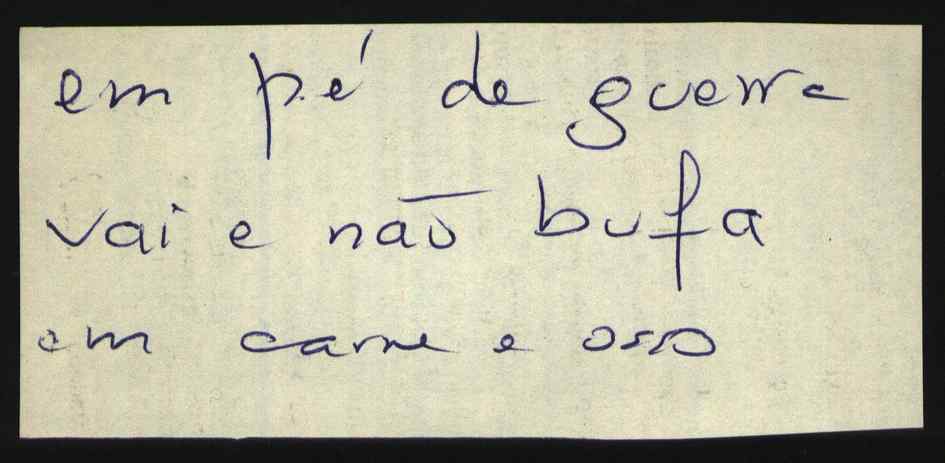 em pé de guerra
vai e não bufa
em carne e osso